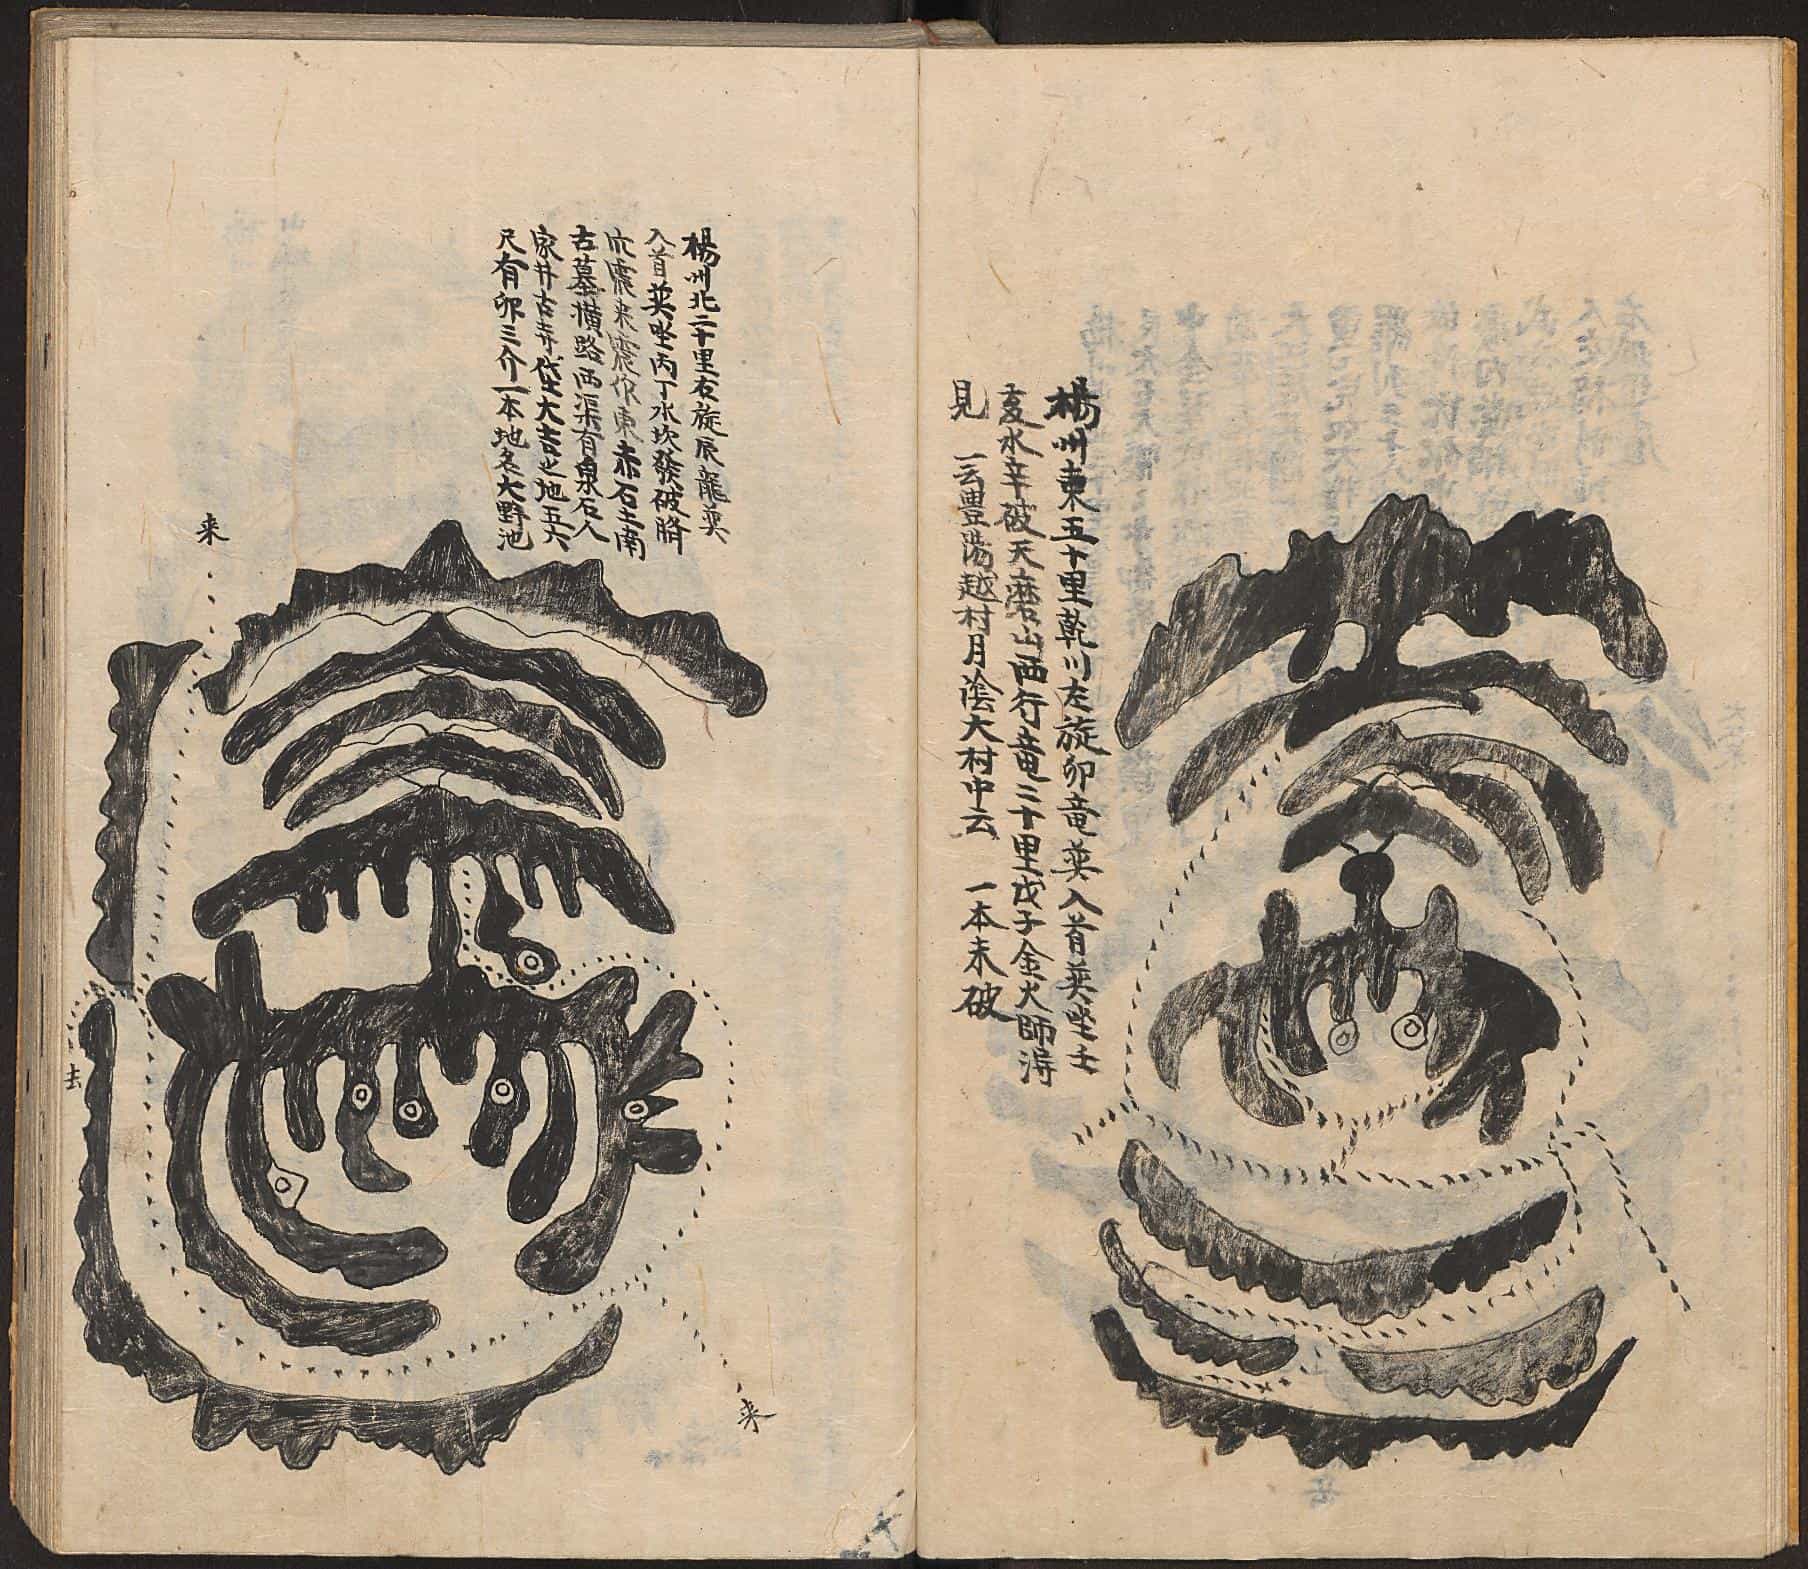 楊州東五十里乾川左旋卯竜巽入首巽坐壬
亥水辛破天磨山西行竜二十里戊子金大師淂
見 一云豊陽越村月滛大村中云 一本未破
楊州北二十里右旋辰龍巽
入首巽坐丙丁水坎發破腈
穴震来震作東赤石土南
古墓横路西渠有泉石人
家井古寺代大吉之地五六
尺有卯三介一本地名大野池
来
去
来